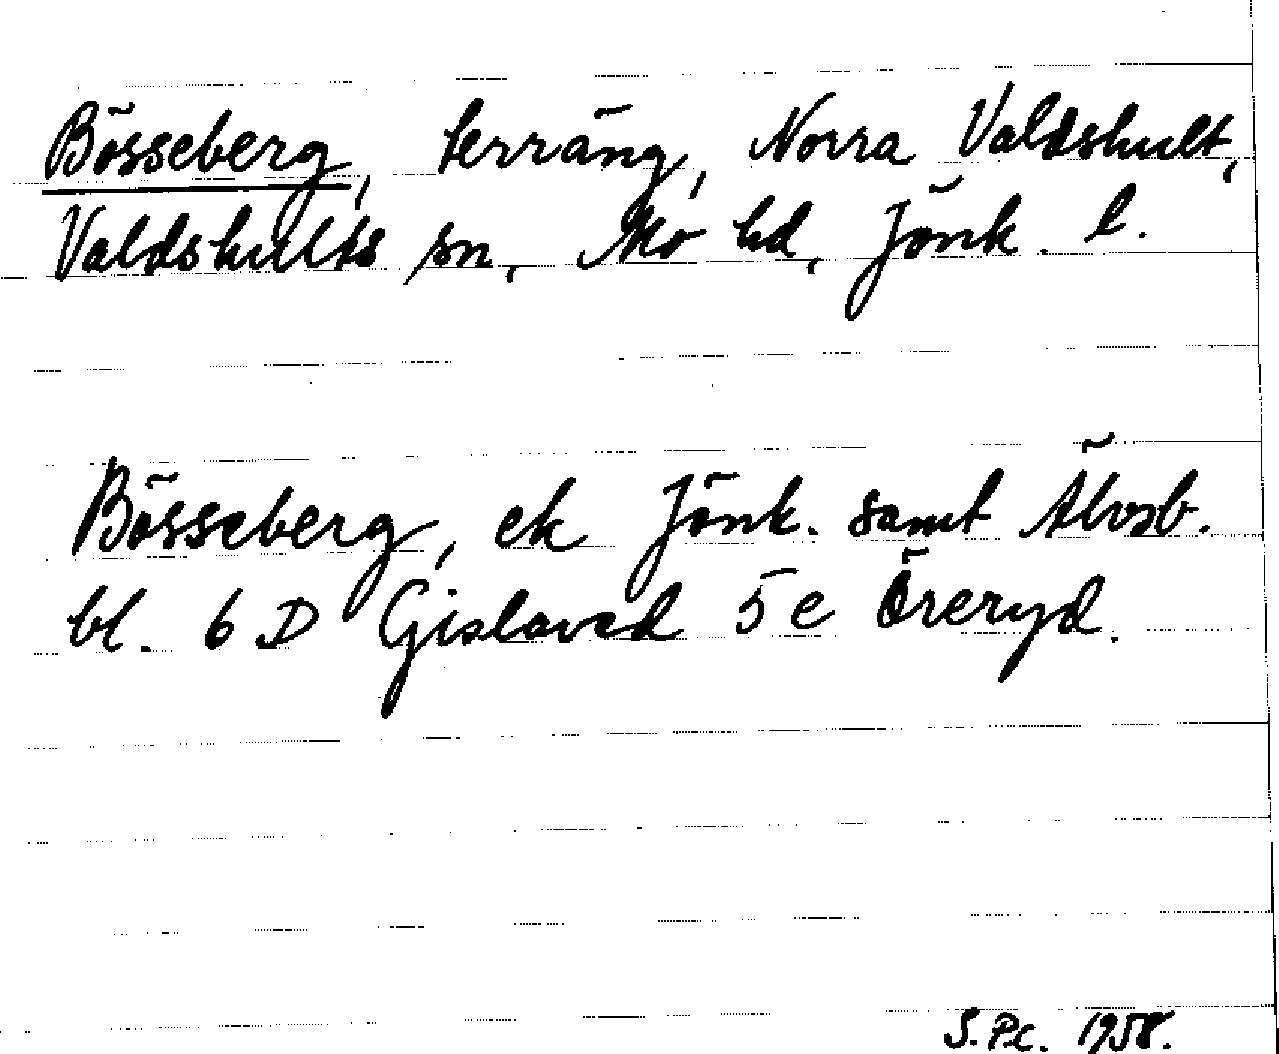 Bösseberg, terräng, Norra Valdshult,
Valdshults sn, Mo hd, Jönk. l.
Bösseberg, ek Jönk. samt Älvsb.
bl. 6 D Gislaved 5 e Öreryd.
S.Pc. 1958.